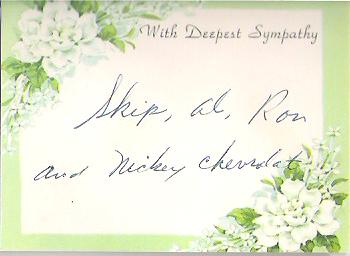 With Deepest Sympathy
Skip, Al, Ron
and Nickey Chevrolet